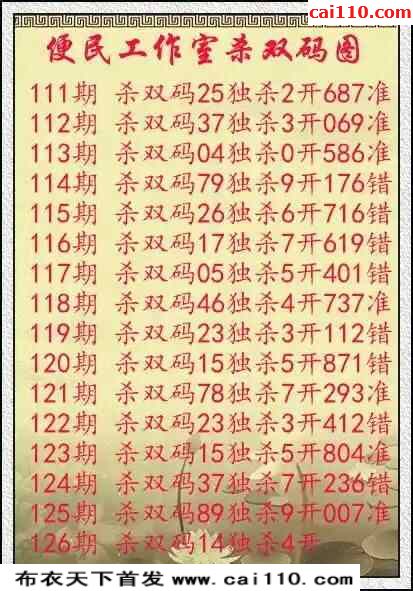 cai110.com
便民工作室杀双码图
111期 杀双码25独杀2开687准
112期 杀双码37独杀3开069准
113期 杀双码04独杀0开586准
114期 杀双码79独杀9开176错
115期 杀双码26独杀6开716错
116期 杀双码17独杀7开619错
117期 杀双码05独杀5开401错
118期 杀双码46独杀4开737准
119期 杀双码23独杀3开112错
120期 杀双码15独杀5开871错
121期 杀双码78独杀7开293准
122期 杀双码23独杀3开412错
123期 杀双码15独杀5开804准
124期 杀双码37独杀7开236错
125期 杀双码89独杀9开007准
126期 杀双码14独杀4开
布衣天下首发 www.cai110.com